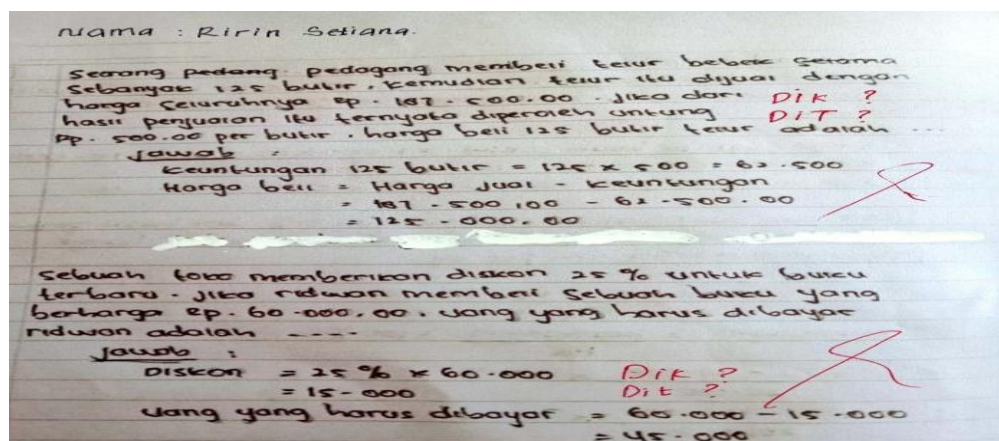 Nama : Ririn Setiana.
Seorang pedang pedagang membeli telur bebek selama
Sebanyak 125 butir. Kemudian telur itu dijual dengan
harga seluruhnya Rp. 187.500.00. Jika dari DIK ?
hasil penjualan itu ternyata diperoleh untung DIT ?
Rp. 500.00 per butir. harga beli 125 butir telur adalah ...
Jawab :
Keuntungan 125 butir = 125 x 500 = 62.500
Harga beli = Harga Jual - Keuntungan
= 187.500.00 - 62.500.00
= 125.000.00
Sebuah toko memberikan diskon 25 % untuk buku
terbaru. Jika ridwan membeli sebuah buku yang
berharga Rp. 60.000,00. uang yang harus dibayar
ridwan adalah ----
Jawab :
Diskon = 25 % x 60.000 Dik ?
= 15.000 Dit ?
uang yang harus dibayar = 60.000 - 15.000
= 45.000